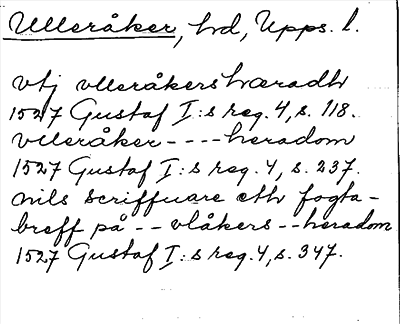 Ulleråker, hd, Upps. l.
vtj vlleråkers hæradh
1527 Gustaf I:s reg. 4, s. 118.
vlleråker - - - - heradom
1527 Gustaf I:s reg. 4, s. 237.
nils scriffuare eth fogta-
breff på - - vlåkers - - heradom
1527 Gustaf I:s reg. 4, s. 347.